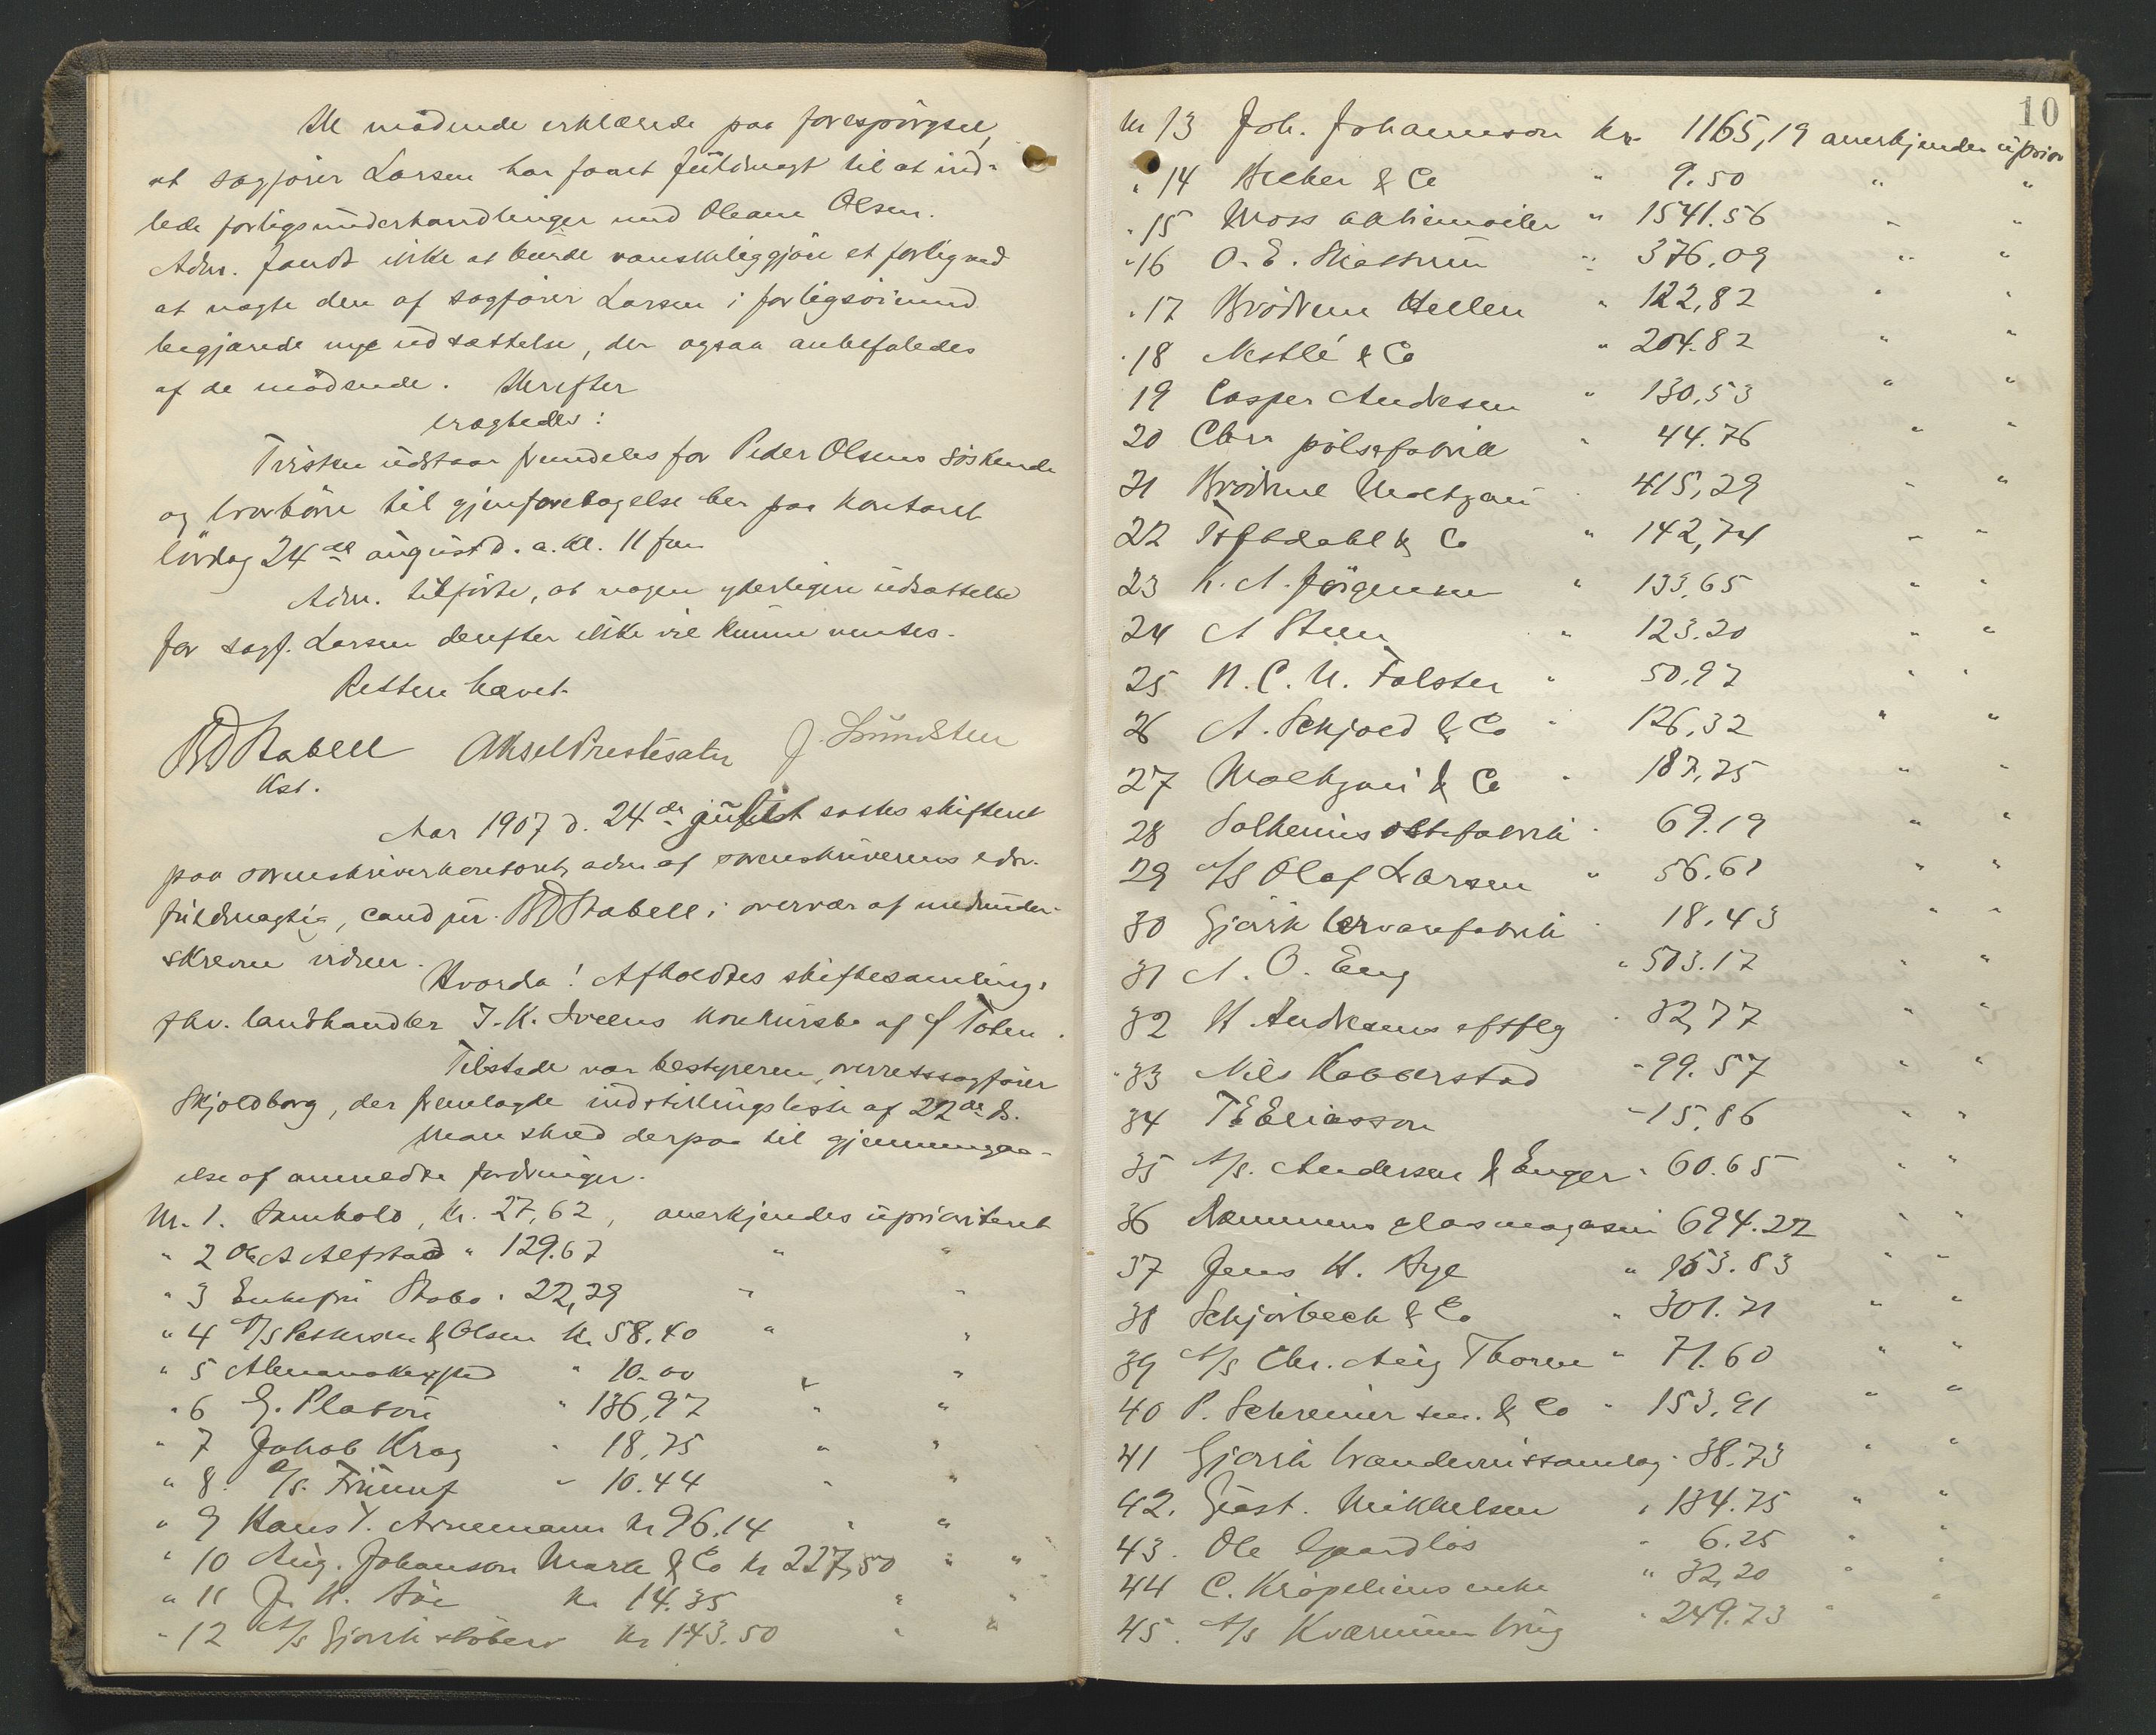 De mödende erklærede paa forespörgsel,
at sagförer Larsen har faaet fuldmagt til at ind-
lede forligsunderhandlinger med Oleane Olsen.
Adm. fandt ikke at burde vanskeliggjöre et forlig ved
at nægte den af sagförer Larsen i forligsöiemed
begjærede nye udsættelse, der ogsaa anbefaledes
af de mödende. Herefter
eragtedes:
Tvisten udstaar fremdeles for Peder Olsens söskende
og til gjenforetagelse her paa kontoret
lördag 24de august d. a. kl. 11 fm.
Adm. tilförte, at nogen yderligere udsættelse
for sagf. Larsen derefter ikke vil kunne ventes.
Retten hævet.
BDStabell Aksel Prestesæter J. Lundsten
Kst.
Aar 1907 d. 24de august sattes skifteret
paa sorenskriverkontoret, adm af sorenskriverens edsv.
fuldmægtig, cand jur. BDStabell i overvær af medunder-
skrevne vidner.
Hvorda! Afholdtes skiftesamling i
fhv. landhandler J. K. Sveens konkursbo af Toten.
Tilstede var bestyreren, overretssagförer
Skjoldborg, der fremlagde indstillingsliste af 22de ds.
Man skred derpaa til gjennemgaa-
else af anmeldte fordringer.
Nr. 1. Samhold, kr. 27,62, anerkjendes uprioriteret
" 2 Ole A Alfstad " 129.67 " "
" 3 Enkefru Stabo " 22,29 " "
" 4 A/S Pettersen & Olsen kr 58.40 " "
" 5 " 10.00 " "
" 6 G. Platou " 136,97 " "
" 7 Jakob Krag " 18,75 " "
" 8. A/S. Triumf " 10.44 " "
" 9 Hans T. Arnemann kr 96.14 " "
" 10 Aug. Johanson Mark & Co kr 227,50 " "
" 11 J. K. kr 14.35 " "
" 12 A/S Gjövik stöberi kr 143.50 " "
10
Nr 13 Joh. Johannson kr. 1165,19 anerkjendes uprior
" 14 & Co " 9.50 " "
" 15 Moss aktiemöller " 1541.56 " "
" 16 O. E. " 376.09 " "
" 17 Brödrene Hellen " 122,82 " "
" 18 Nestlé & Co " 204.82 " "
19 Casper Andresen " 130,53 " "
20 Chra pölsefabrik " 44.76 " "
21 Brödrene Moltzau " 415,29 " "
22 & Co " 142,74 " "
23 K. A. Jörgensen " 133,65 " "
24 A Steen " 123.20 " "
25 N. C. U. Falster " 50,97 " "
26 A. Schjoed & Co " 126,32 " "
27 Moltzau & Co " 187,75 " "
28 Solheims ostefabrik " 69.19 " "
29 A/S Olaf Larsen " 56.61 " "
30 Gjövik lervarefabrik " 18.43 " "
31 A. O. Eng " 503.17 " "
32 H Andresens eftflg " 32,77 " "
" 33 Nils Kobberstad " 99.57 " "
34 T E Eliasson " 15.86 " "
35 A/S. Andersen & Enger " 60.65 " "
36 glasmagasin 694.22 " "
37 Jens H. Bye " 153.83 " "
38 Schjörbeck & Co " 301.21 " "
39 A/S Chr. Aug Thorne " 71.60 " "
40 P. Schreiner sen. & Co " 153.91 " "
41 Gjövik brændevinssamlag " 38.73 " "
42. Gust. Mikkelsen " 134.75 " "
43. Ole Gaardlös " 6.25 " "
44 C. Kröpeliens enke " 32,20 " "
45. A/S Kværnum brug " 249.73 " "